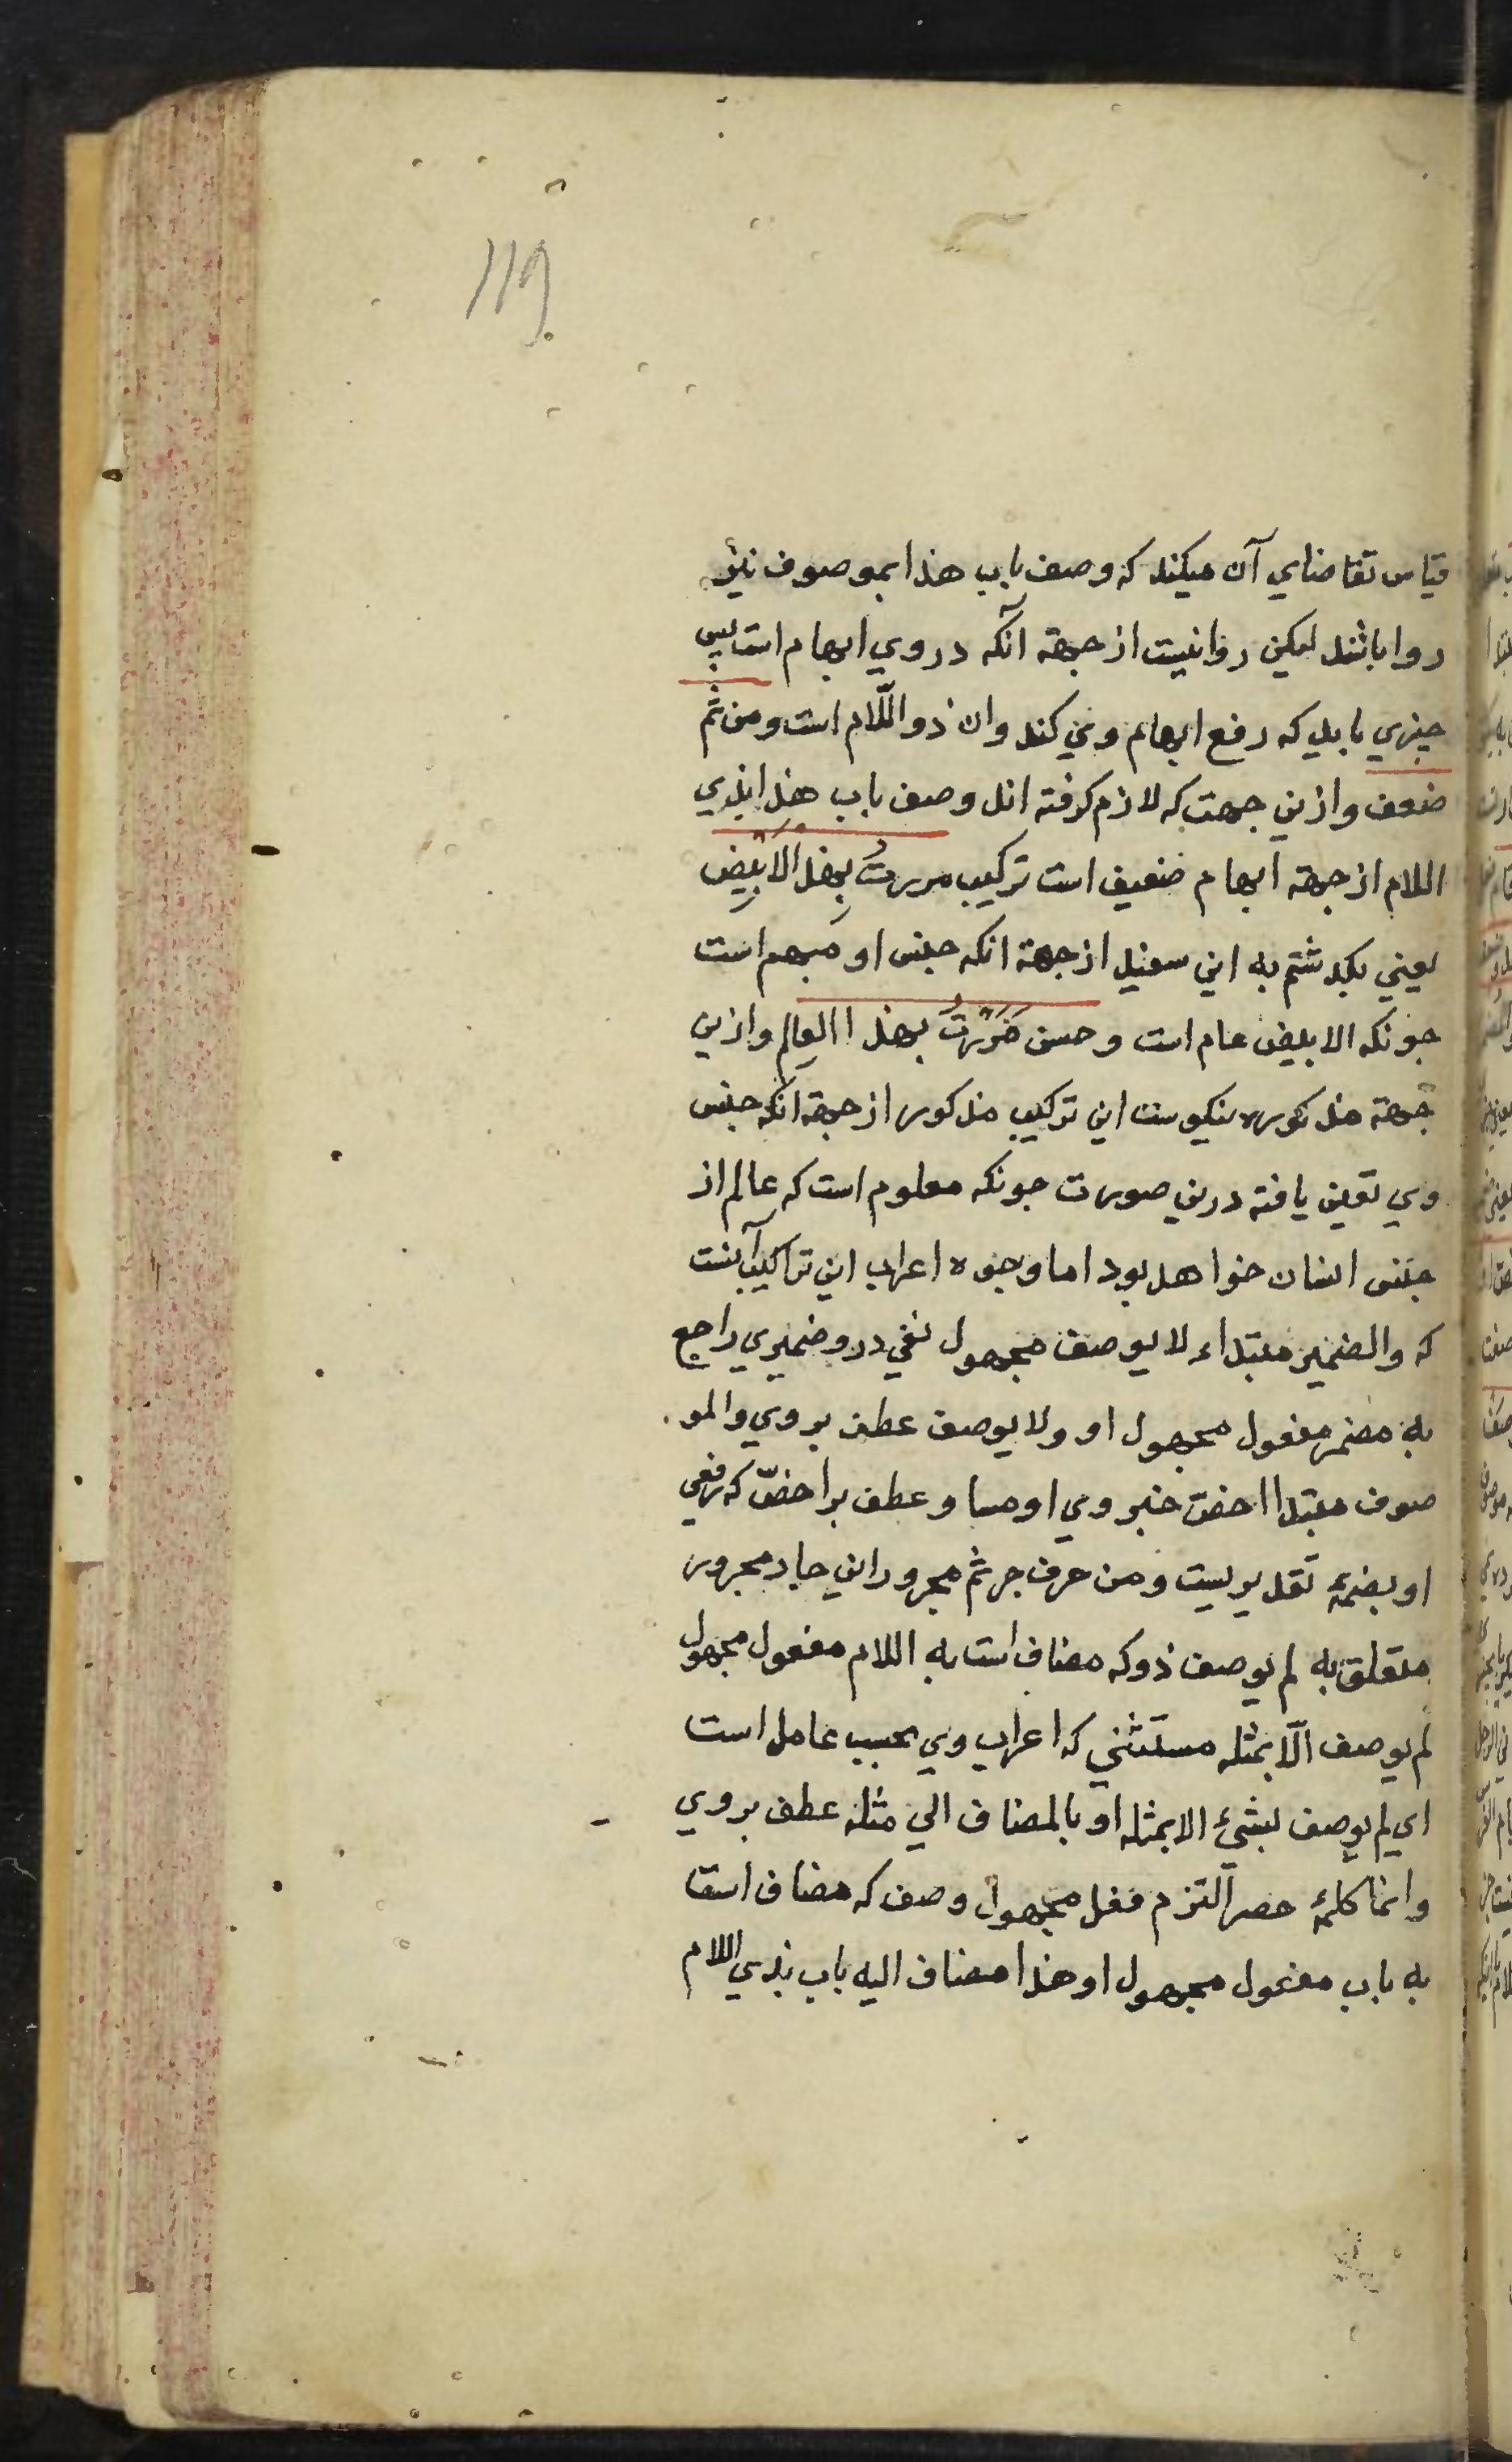 119
قیاس تقاضاي آن میکند که وصف باب هذا بموصوف نیز
روا باشد لیکن روا نیست از جهة آنکه در وي ابهام است پس
چیزي باید که رفع ابهام وي کند وان ذو اللّام است ومن ثَمّ
ضعف وازین جهت که لازم کرفته اند وصف باب هذا بذي
اللام از جهة ابهام ضعیف است ترکیب مررتُ بهذا الابیض
یعني بکذشتم به این سفید از جهة انکه جنس او مبهم است
جونکه الابیض عام است وحسن مررتُ بهذا العالم وازین
جهة مذکوره نیکوست این ترکیب مذکور از جهة انکه جنس
وي تعین یافته درین صورت جونکه معلوم است که عالم از
جنس انسان خواهد بود اما وجوه اعراب این تراکیب آنست
که والضمیر مبتداء لا یوصف مجهول نفي درو ضمیري راجع
به مضمر مفعول مجهول او ولا یوصف عطف بر وي والمو
صوف مبتدا اخصّ خبر وي او مساو عطف بر اخصّ که رفع
او بضمهٔ تقدیریست ومن حرف جر ثم مجرور این جار مجرور
متعلق به لم یوصف ذو که مضاف است به اللام مفعول مجهول
لم یوصف الّا بمثله مستثني که اعراب وي بحسب عامل است
اي لم یوصف بشيءٍ الا بمثله او بالمضاف الي مثله عطف بر وي
وانما کلمهٔ حصر التزم فعل مجهول وصف که مضاف است
به باب مفعول مجهول او هذا مضاف الیه باب بذي اللام